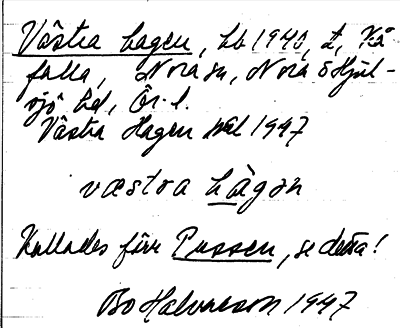 Västra hagen, hb 1940, t, Kå
falla, Nora sn, Nora o Hjul-
sjö hd, Ör. l.
Västra Hagen 1947
væstra hàgən
Kallades förr Pussen, se detta!
Bo Halvarson 1947